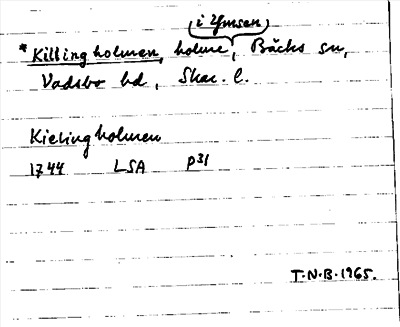 i Ymsen
*Killingholmen, holme, Bäcks sn,
Vadsbo hd, Skar. l.
Kielingholmen
1744 LSA P31
T.N.B. 1965.